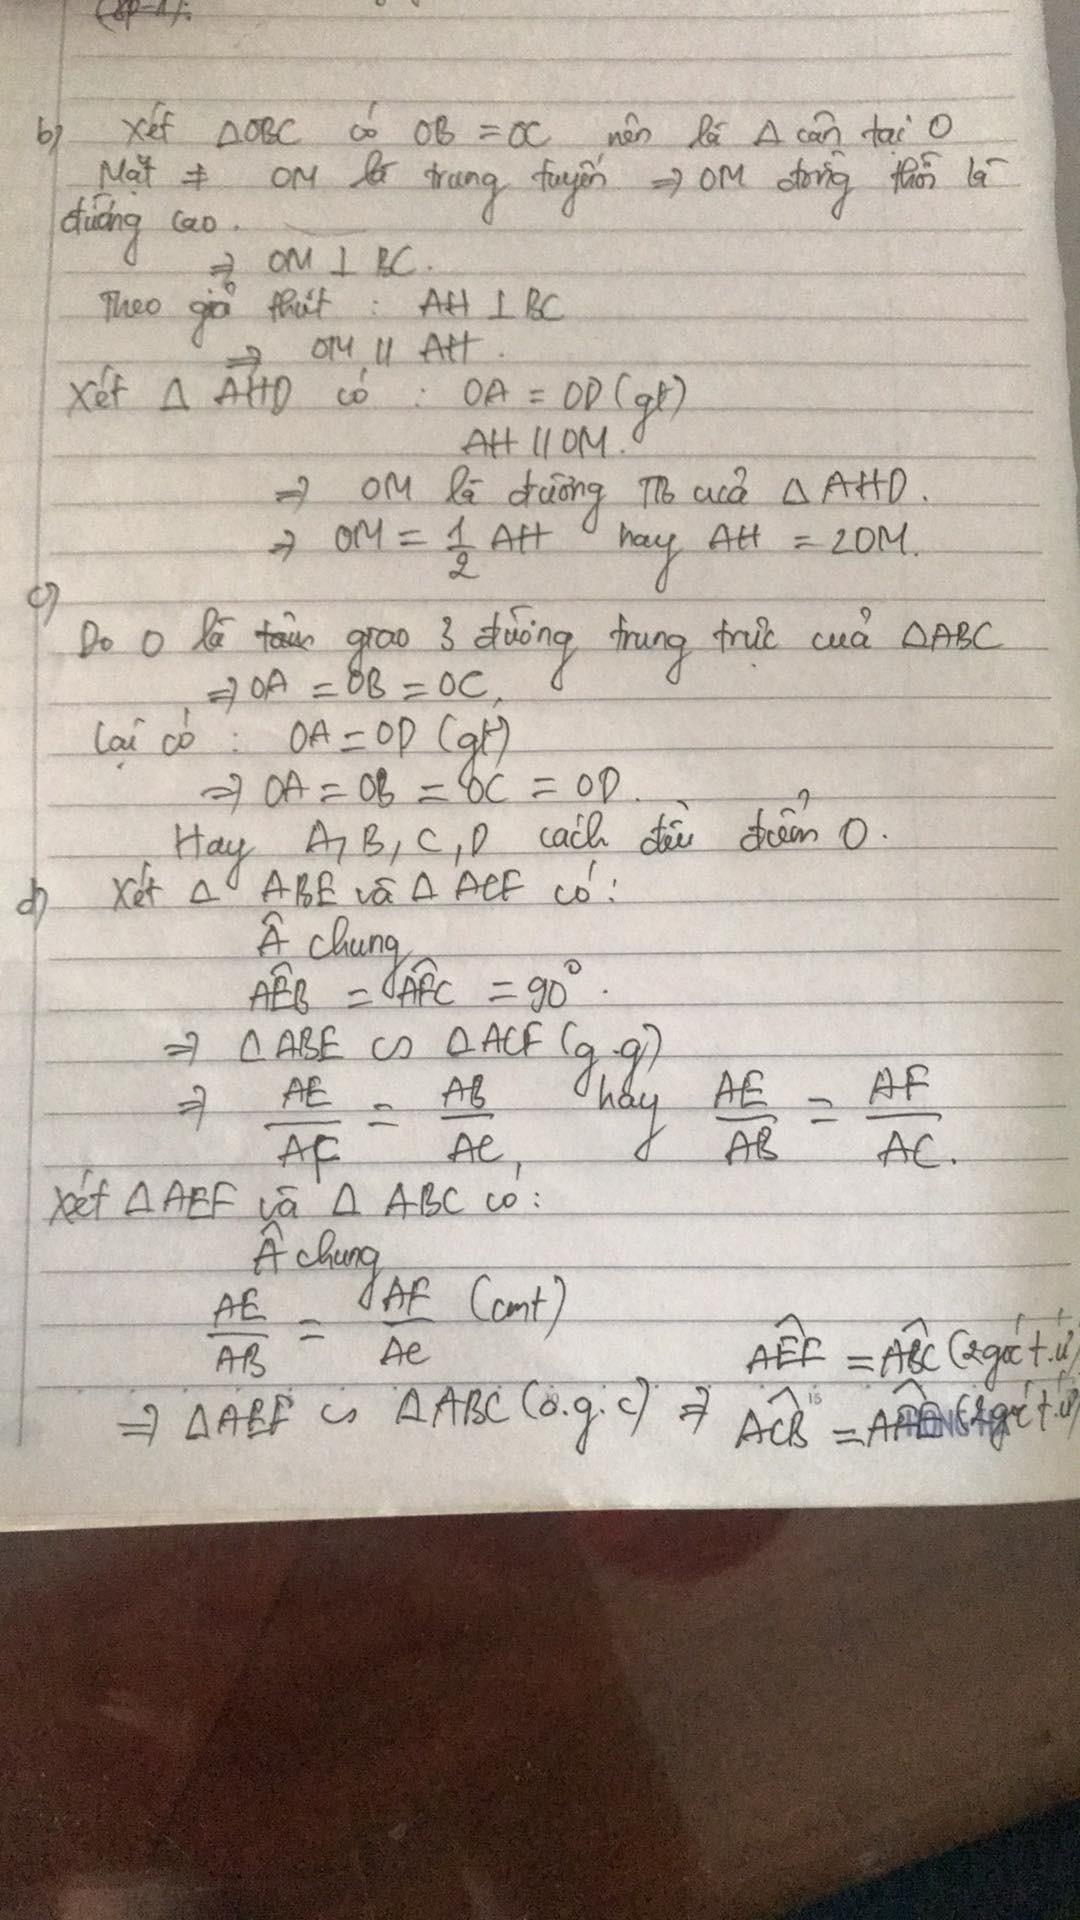 b) Xét ΔOBC có OB = OC nên là Δ cân tại O
Mặt ≠ OM là trung tuyến ⇒ OM đồng thời là
đường cao.
⇒ OM ⊥ BC.
Theo giả thiết : AH ⊥ BC
⇒ OM // AH.
Xét Δ AHD có : OA = OD (gt)
AH // OM.
⇒ OM là đường TB cuả Δ AHD.
⇒ OM = 1/2 AH hay AH = 2OM.
c)
Do O là giao 3 đường trung trực cuả ΔABC
⇒ OA = OB = OC,
Lại có : OA = OD (gt)
⇒ OA = OB = OC = OD.
Hay A, B, C, D cách đều điểm O.
d) Xét Δ ABE và Δ ACF có:
Â chung
AÊB = AF̂C = 90°.
⇒ ΔABE ∽ ΔACF (g.g)
⇒ AE/AF = AB/AC, hay AE/AB = AF/AC.
Xét ΔAEF và Δ ABC có:
Â chung
AE/AB = AF/AC (cmt)
⇒ ΔAEF ∽ ΔABC (c.g.c) ⇒ AÊF = AB̂C (2 góc t.ứ)
AĈB = (2 góc t.ứ)